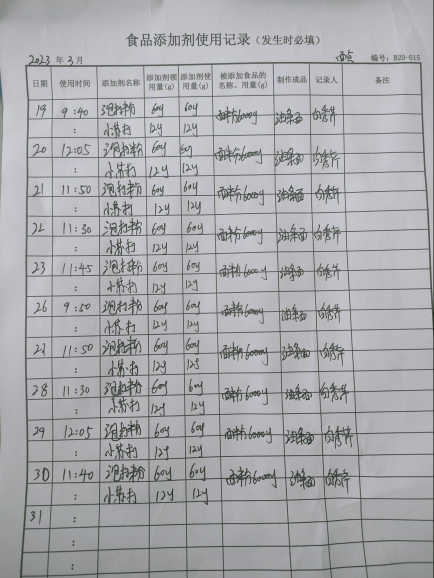 食品添加剂使用记录（发生时必填）
2023 年 3 月 西点 编号：B20-015
日期 使用时间 添加剂名称 添加剂使用量(g) 添加剂使用量(g) 被添加食品的名称、用量(g) 制作成品 记录人 备注
19 9:40 泡打粉 60g 60g 面粉6000g 油条面
: 小苏打 12g 12g
20 12:05 泡打粉 60g 60g 面粉6000g 油条面
: 小苏打 12g 12g
21 11:50 泡打粉 60g 60g 面粉6000g 油条面
: 小苏打 12g 12g
22 11:30 泡打粉 60g 60g 面粉6000g 油条面
: 小苏打 12g 12g
23 11:45 泡打粉 60g 60g 面粉6000g 油条面
: 小苏打 12g 12g
26 9:50 泡打粉 60g 60g 面粉6000g 油条面
: 小苏打 12g 12g
27 11:50 泡打粉 60g 60g 面粉6000g 油条面
: 小苏打 12g 12g
28 11:30 泡打粉 60g 60g 面粉6000g 油条面
: 小苏打 12g 12g
29 12:05 泡打粉 60g 60g 面粉6000g 油条面
: 小苏打 12g 12g
30 11:40 泡打粉 60g 60g 面粉6000g 油条面
: 小苏打 12g 12g
31 :
:
: